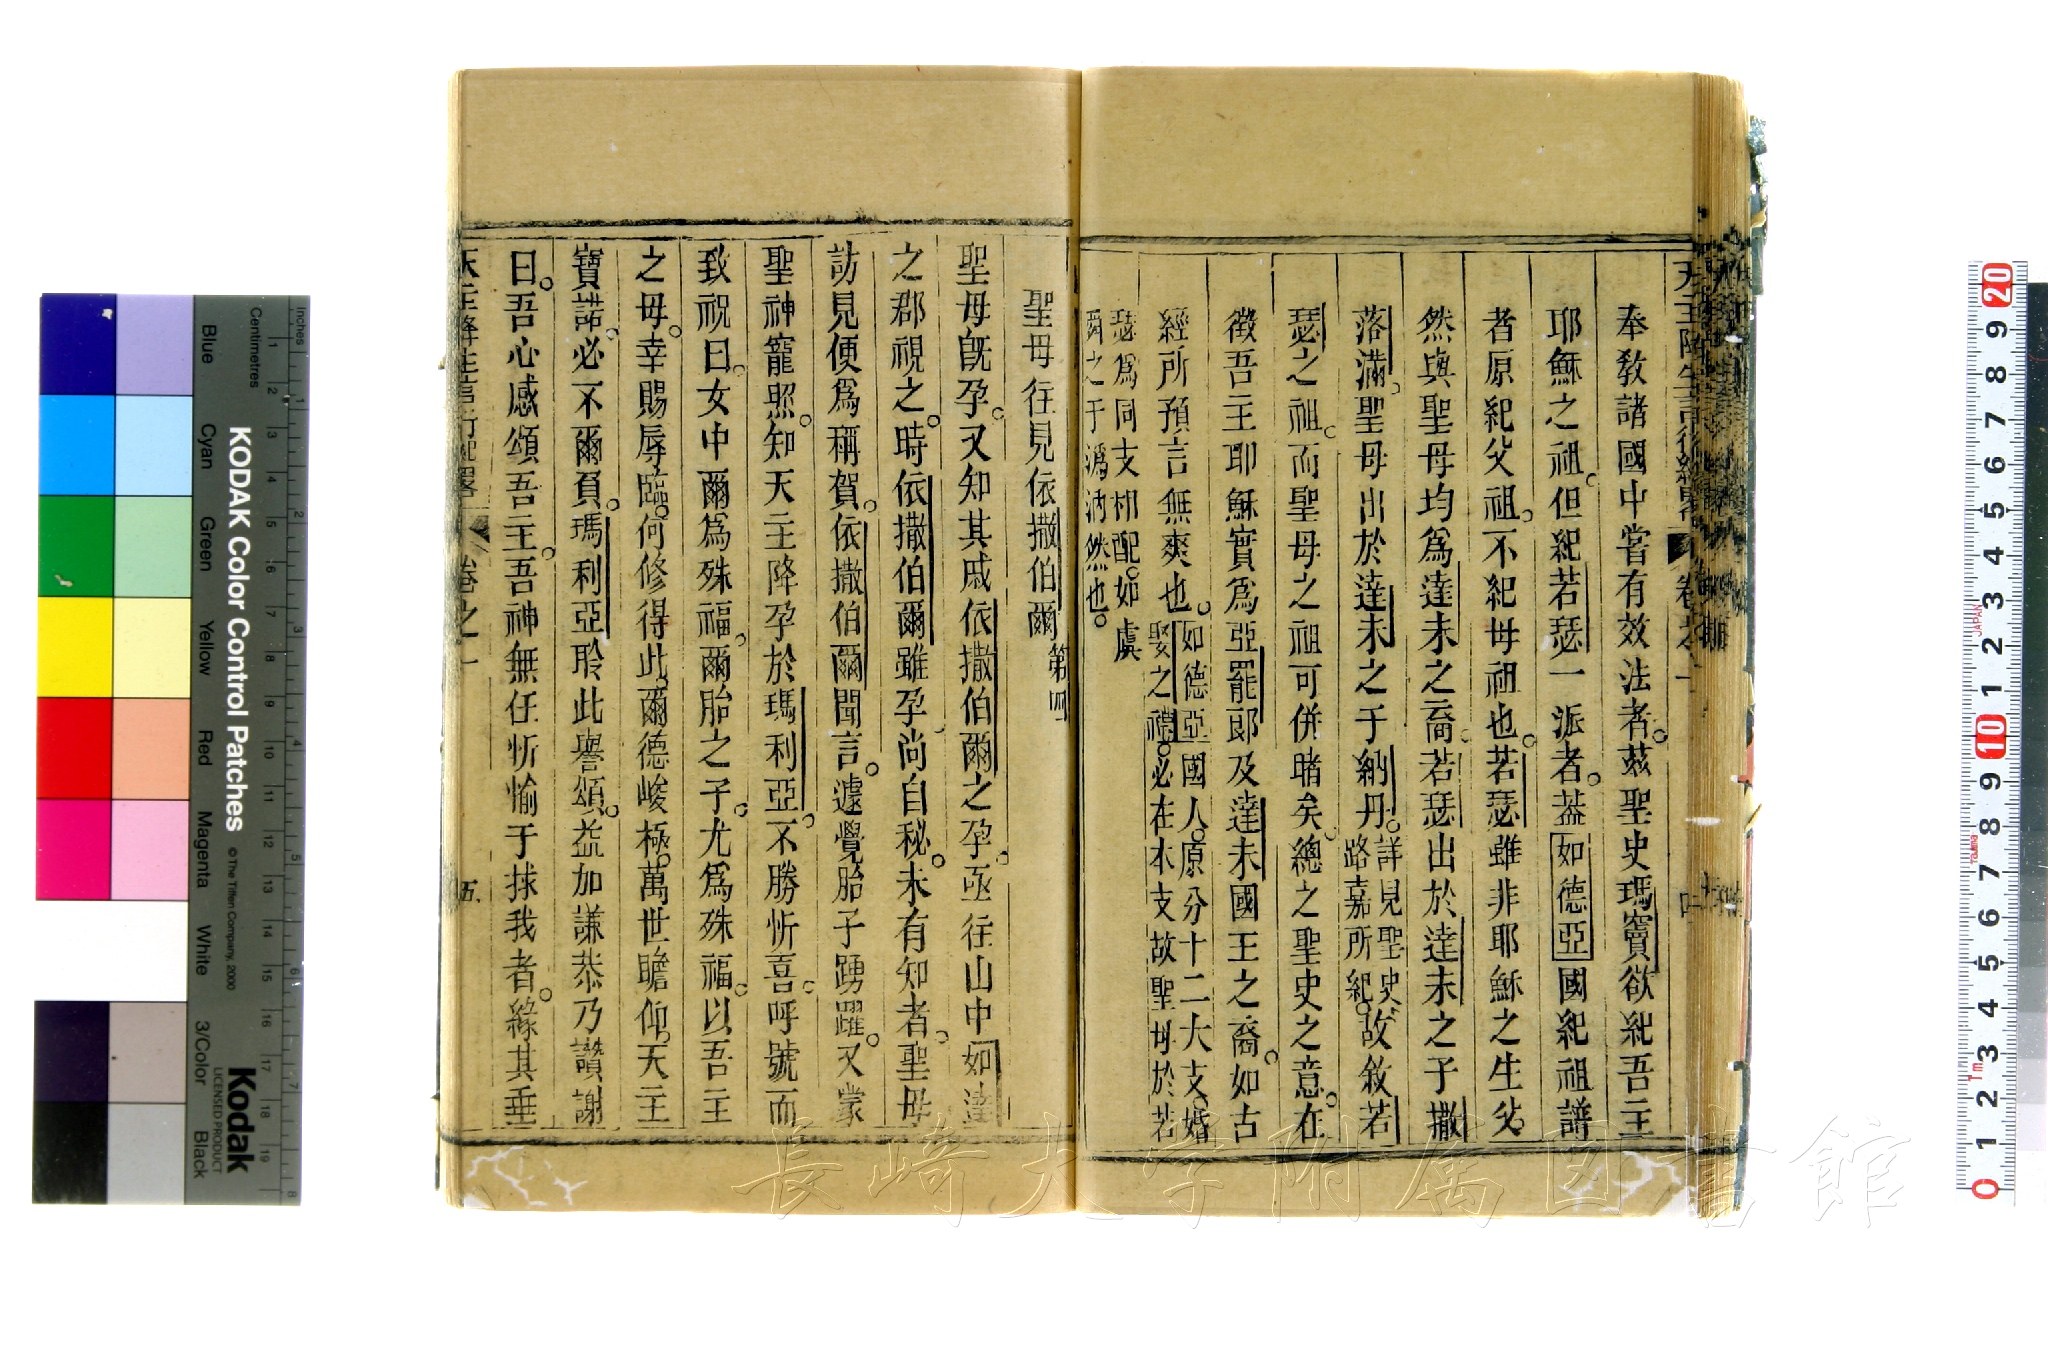 奉敎諸國中嘗有效法者茲聖史瑪竇欲紀吾主
耶穌之祖但紀若瑟一派者葢如德亞國紀祖譜
者原紀父祖不紀母祖也若瑟雖非耶穌之生父
然與聖母均爲達未之裔若瑟出於達未之子撒
落滿聖母出於達未之子納丹詳見聖史路嘉所紀故敘若
瑟之祖而聖母之祖可併睹矣總之聖史之意在
徵吾主耶穌實爲亞罷郎及達未國王之裔如古
經所預言無爽也如德亞國人原分十二大支婚娶之禮必在本支故聖母於若
瑟爲同支相配如虞舜之于溈汭然也
聖母往見依撒伯爾 第四
聖母旣孕又知其戚依撒伯爾之孕亟往山中如達
之郡視之時依撒伯爾雖孕尚自秘未有知者聖母
訪見便爲稱賀依撒伯爾聞言遽覺胎子踴躍又蒙
聖神寵照知天主降孕於瑪利亞不勝忻喜呼號而
致祝曰女中爾爲殊福爾胎之子尤爲殊福以吾主
之母幸賜辱臨何修得此爾德峻極萬世瞻仰天主
寶諾必不爾負瑪利亞聆此譽頌益加謙恭乃讚謝
曰吾心感頌吾主吾神無任忻愉于拯我者緣其垂
天主降生言行紀畧 卷之一 五
天主降生言行紀畧 卷之一 四
長崎大学附属図書館
KODAK Color Control Patches
© The Tiffen Company, 2000
Kodak
LICENSED PRODUCT
Inches
Centimetres
Blue
Cyan
Green
Yellow
Red
Magenta
White
3/Color
Black
JAPAN
Tajima